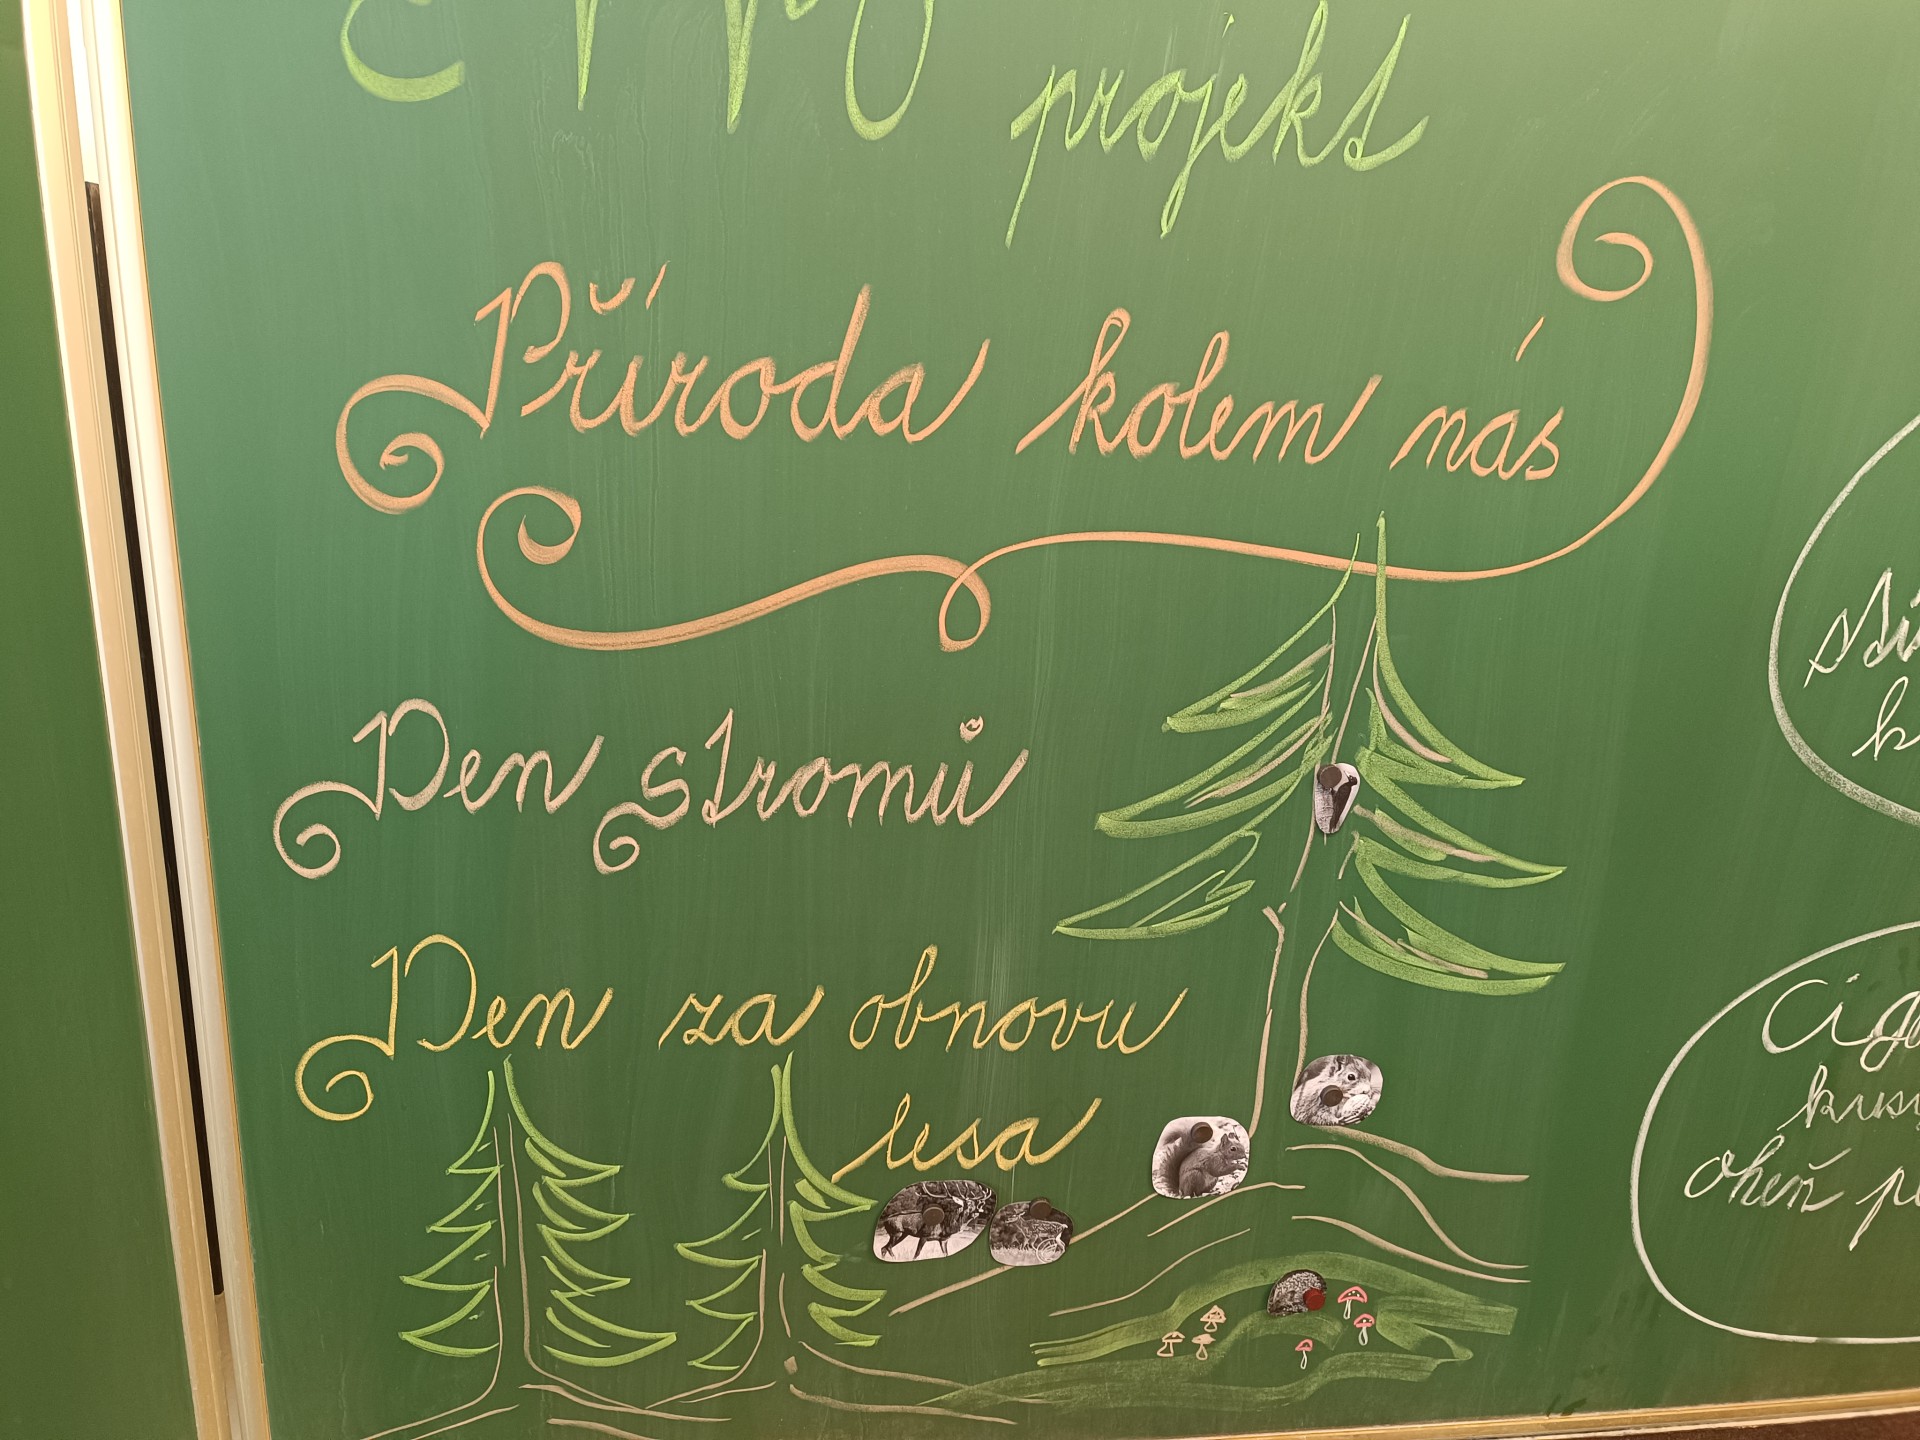 projekt
Příroda kolem nás
Den stromů
Den za obnovu
lesa
oheň